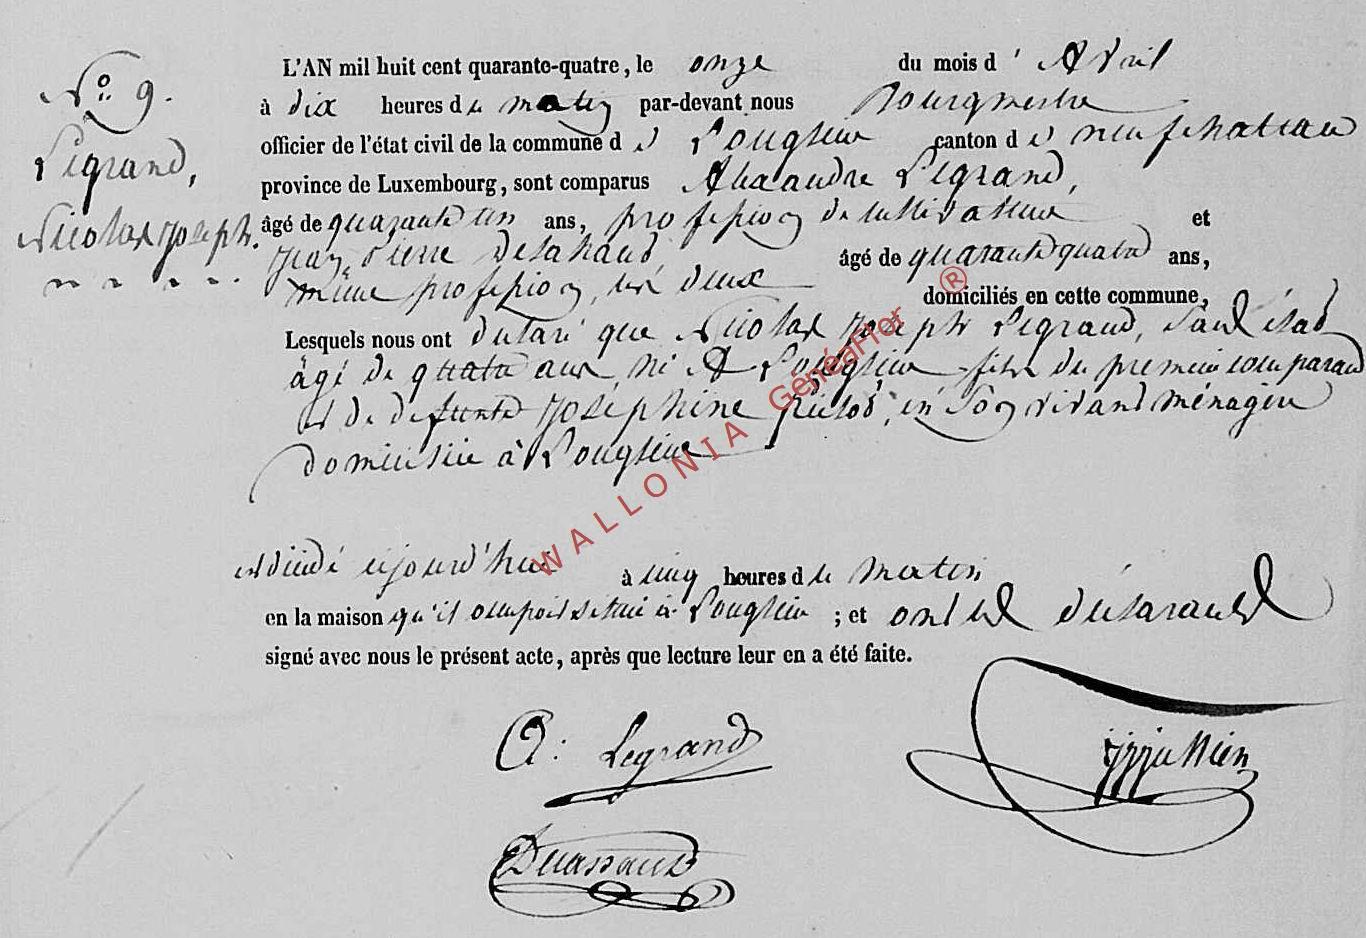 N.° 9.
Legrand,
Nicolas Joseph.
L'AN mil huit cent quarante-quatre, le onze du mois d' Avril
à dix heures du matin par-devant nous Bourgmestre
officier de l'état civil de la commune de Longlier canton de neufchateau
province de Luxembourg, sont comparus Alexandre Legrand,
âgé de quarante un ans, profession de cultivateur et
Jean Pierre âgé de quarante quatre ans,
même profession, les deux domiciliés en cette commune,
Lesquels nous ont declaré que Nicolas Joseph Legrand, sans état
âgé de quatre ans, né à Longlier fils du premier comparant
et de defunte Josephine en son vivant ménagère
domiciliée à Longlier
est décédé ajourd'hui à cinq heures du matin
en la maison qu'il occupoit située à Longlier ; et ont les déclarants
signé avec nous le présent acte, après que lecture leur en a été faite.
A: Legrand
WALLONIA GénéaFlor ®